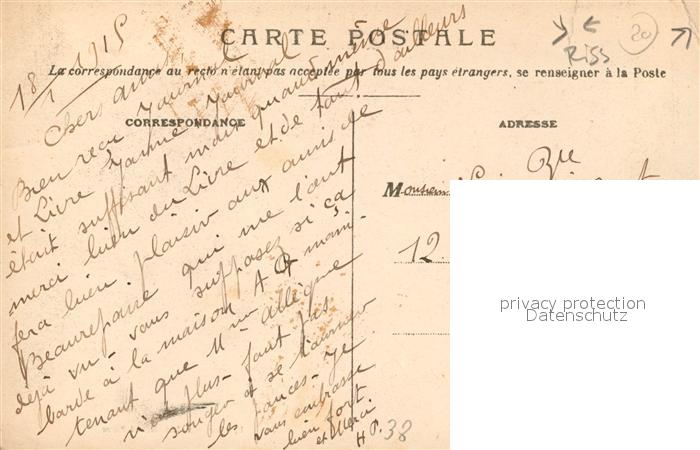 CARTE POSTALE
La correspondance au recto n'étant pas acceptée par tous les pays étrangers, se renseigner à la Poste
CORRESPONDANCE
18/1/1915
Chers amis
Bien reçu Journal
et Livre Journal
était suffisant mais quand même
merci bien du Livre et de tout d'ailleurs
fera bien plaisir aux amis de
Beaurepaire qui me l'ont
déjà vu - vous supposez si ça
barde à la maison A B main-
tenant que Mr Allègue
n'a plus - faut pas
songer à se tourner
les pouces - Je
vous embrasse
bien fort
et Merci
H P.
38
Riss
20
ADRESSE
Monsieur
12
privacy protection
Datenschutz